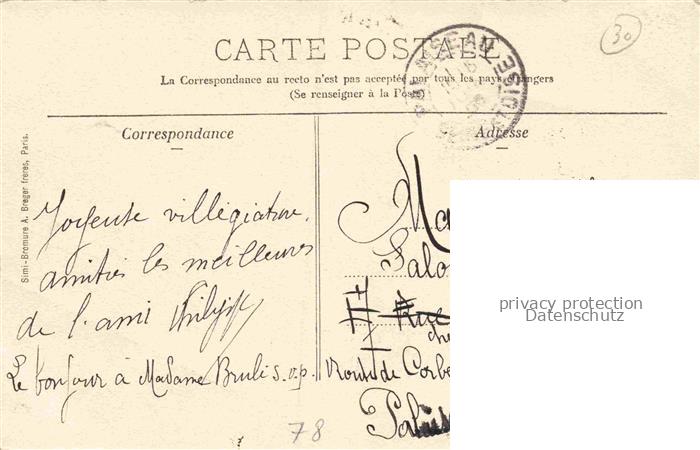 30
CARTE POSTALE
La Correspondance au recto n'est pas acceptée par tous les pays étrangers
(Se renseigner à la Poste)
Correspondance
Adresse
Simi-Bromure A. Breger frères, Paris.
Joyeuse villégiature,
amitiés les meilleures
de l'ami Philippe
Le bonjour à Madame Bruli s.v.p.
Ma
Salo
17 Rue
che
Route de Corbe
78
privacy protection
Datenschutz